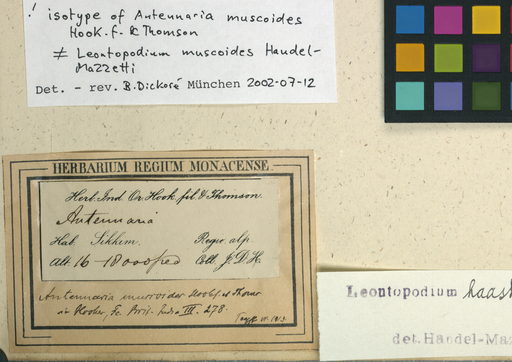 ! isotype of Antennaria muscoides
Hook.f. & Thomson
≠ Leontopodium muscoides Handel-
Mazzetti
Det. – rev. B.Dickoré München 2002-07-12
HERBARIUM REGIUM MONACENSE.
Herb. Ind. Or. Hook. fil. & Thomson.
Antennaria
Hab. Sikkim. Regio alp.
Alt. 16-18000 ped Coll. J.D.H.
Antennaria muscoides Hook f. et Thoms
in Hooker, Fl. Brit. India III. 278.
Leontopodium haast
det. Handel-Maz